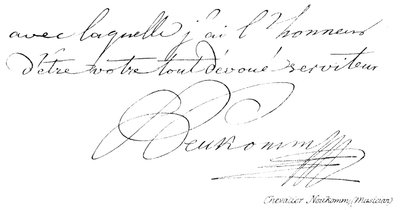 avec laquelle j'ai l'honneur
d'être votre tout dévoué serviteur
Neukomm
Chevalier Neukomm (Musician)